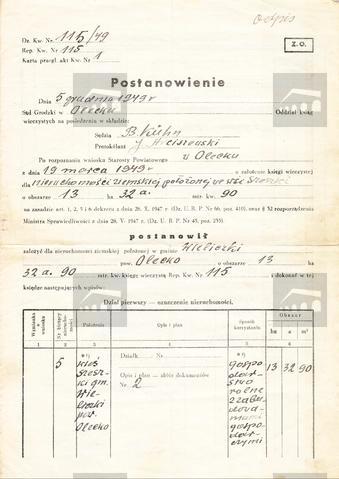 odpis
Dz. Kw. Nr. 115/49
Rep. Kw. Nr. 115
Karta przegl. akt Kw. Nr. 1
Z.O.
Postanowienie
Dnia 5 grudnia 1949 r
Sąd Grodzki w Olecku Oddział ksiąg
wieczystych na posiedzeniu w składzie:
Sędzia B. Kühn
Protokólant J.
Po rozpoznaniu wniosku Starosty Powiatowego w Olecku
z dnia 19 marca 1949 r o założenie księgi wieczystej
dla nieruchomości ziemskiej położonej we wsi
o obszarze 13 ha 32 a. mtr. kw. 90
na zasadzie art. 1, 2, 5 i 6 dekretu z dnia 28. X. 1947 r. (Dz. U. R. P. Nr 66, poz. 410), oraz § 32 rozporządzenia
Ministra Sprawiedliwości z dnia 28. V. 1947 r. (Dz. U. R. P. Nr 45, poz. 255).
postanowił
założyć dla nieruchomości ziemskiej położonej w gminie Wieliczki
pow. Olecko o obszarze 13 ha
32 a. 90 mtr. kw. księgę wieczystą Rep. Kw. Nr. 115 i dokonać w tej
księdze następujących wpisów:
Dział pierwszy — oznaczenie nieruchomości.
Wzmianka o wniosku
Nr bieżący nieruchomości
Położenie
Opis i plan
Sposób korzystania
Obszar
ha a m²
1 2 3 4 5 6
5
wieś
gm.
Wieliczki
pow.
Olecko
Działk. Nr.
Opis i plan — zbiór dokumentów
Nr. 2
gospodarstwo
rolne
z zabudowaniami
gospodarczymi
13 32 90